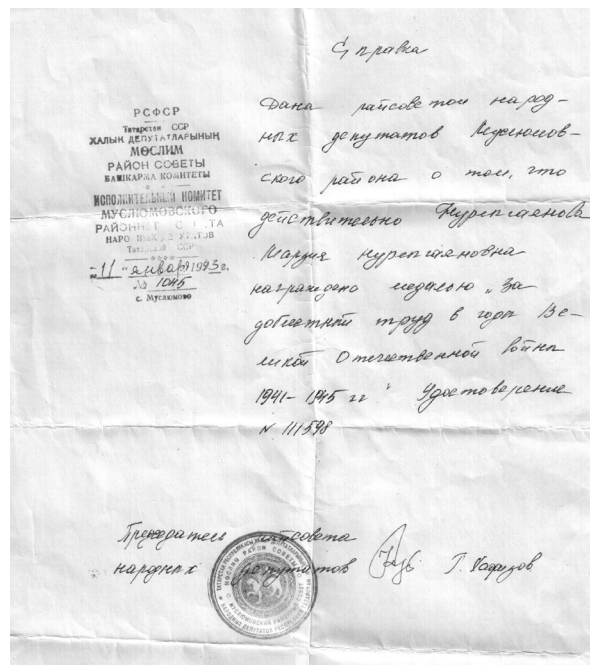 Справка
РСФСР
Татарстан ССР
ХАЛЫК ДЕПУТАТЛАРЫНЫҢ
МӨСЛИМ
РАЙОН СОВЕТЫ
БАШКАРМА КОМИТЕТЫ
ИСПОЛНИТЕЛЬНЫЙ КОМИТЕТ
МУСЛЮМОВСКОГО
РАЙОННОГО СОВЕТА
НАРОДНЫХ ДЕПУТАТОВ
Татарской ССР
"11" января 1993 г.
№ 1045
с. Муслюмово
Дана райсоветом народ-
ных депутатов Муслюмов-
ского района о том, что
действительно
Нурегаяновна
награждена медалью „За
доблестный труд в годы Ве-
ликой Отечественной войны
1941-1945 гг" Удостоверение
N 111598
Председатель райсовета
народных депутатов Г. Хафизов
МӨСЛИМ РАЙОН СОВЕТЫ